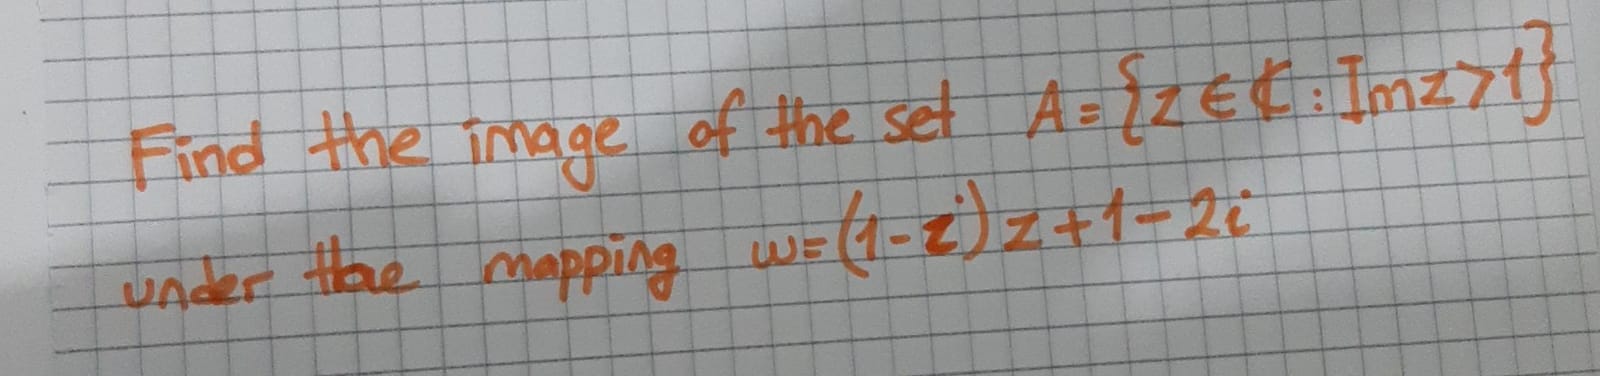 Find the image of the set A={z∈ℂ:Imz>1}
under the mapping w=(1-i)z+1-2i